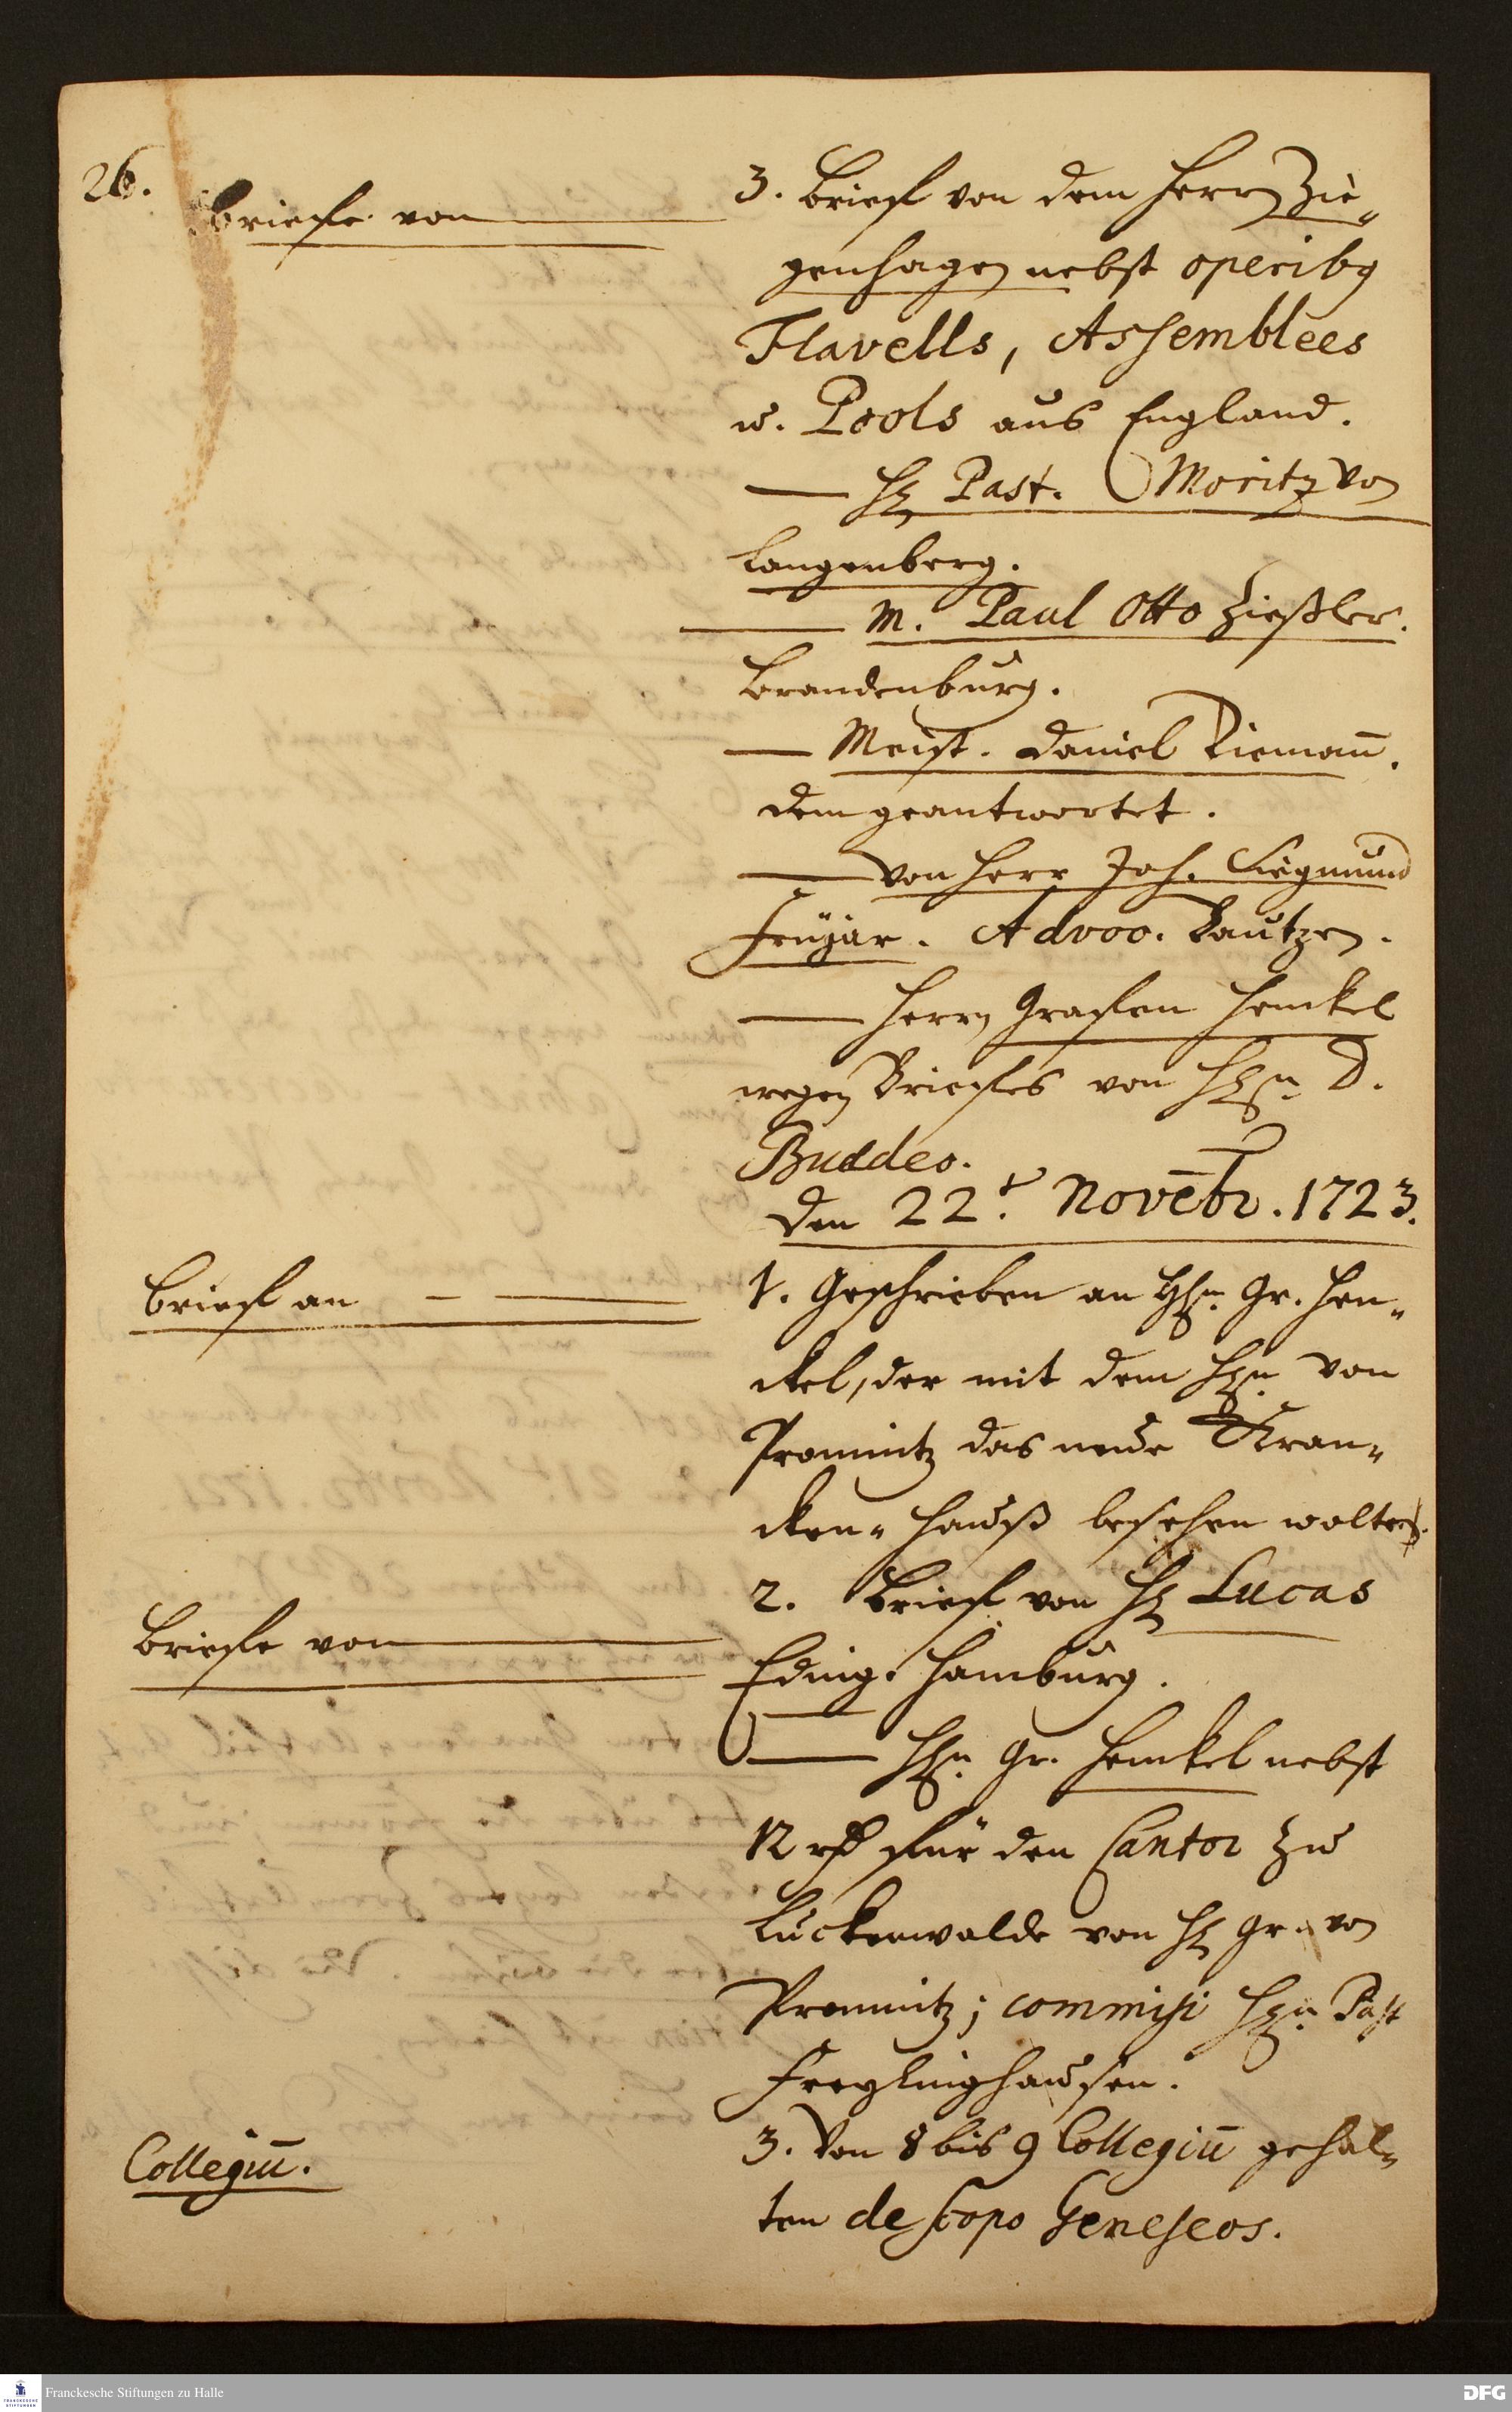 26.
Briefe von
3. Brief von dem Herrn Zie-
genhagen nebst operibq
Flavells, Assemblees
u. Pools aus England.
— H. Past. Moritz von
Langenberg.
— M. Paul Otto Zießler.
Brandenburg.
— Meist. Daniel Riemañ.
dem geantwortet.
— von Herr Joh. Siegmund
Advoc. Bautzen.
— Herrn Grafen Henckel
wegen Briefes von H.n D.
Buddeo.
Den 22.t Novēbr. 1723.
Brief an — —
1. Geschrieben an H.n Gr. Hen-
ckel, der mit dem H.n von
Promnitz das neue Kran-
cken-Hauß besehen wolten.
Briefe von
2. Brief von H. Lucas
Eding. Hamburg.
— H.n Gr. Henckel nebst
12 rth für den Cantor zu
Luckenwalde von H. Gr. von
Promnitz; commisi H.n Past
Freylinghausen.
Collegiū.
3. Von 8 bis 9 Collegiū gehal-
ten de scopo Geneseos.
Franckesche Stiftungen zu Halle
FRANCKESCHE
STIFTUNGEN
DFG